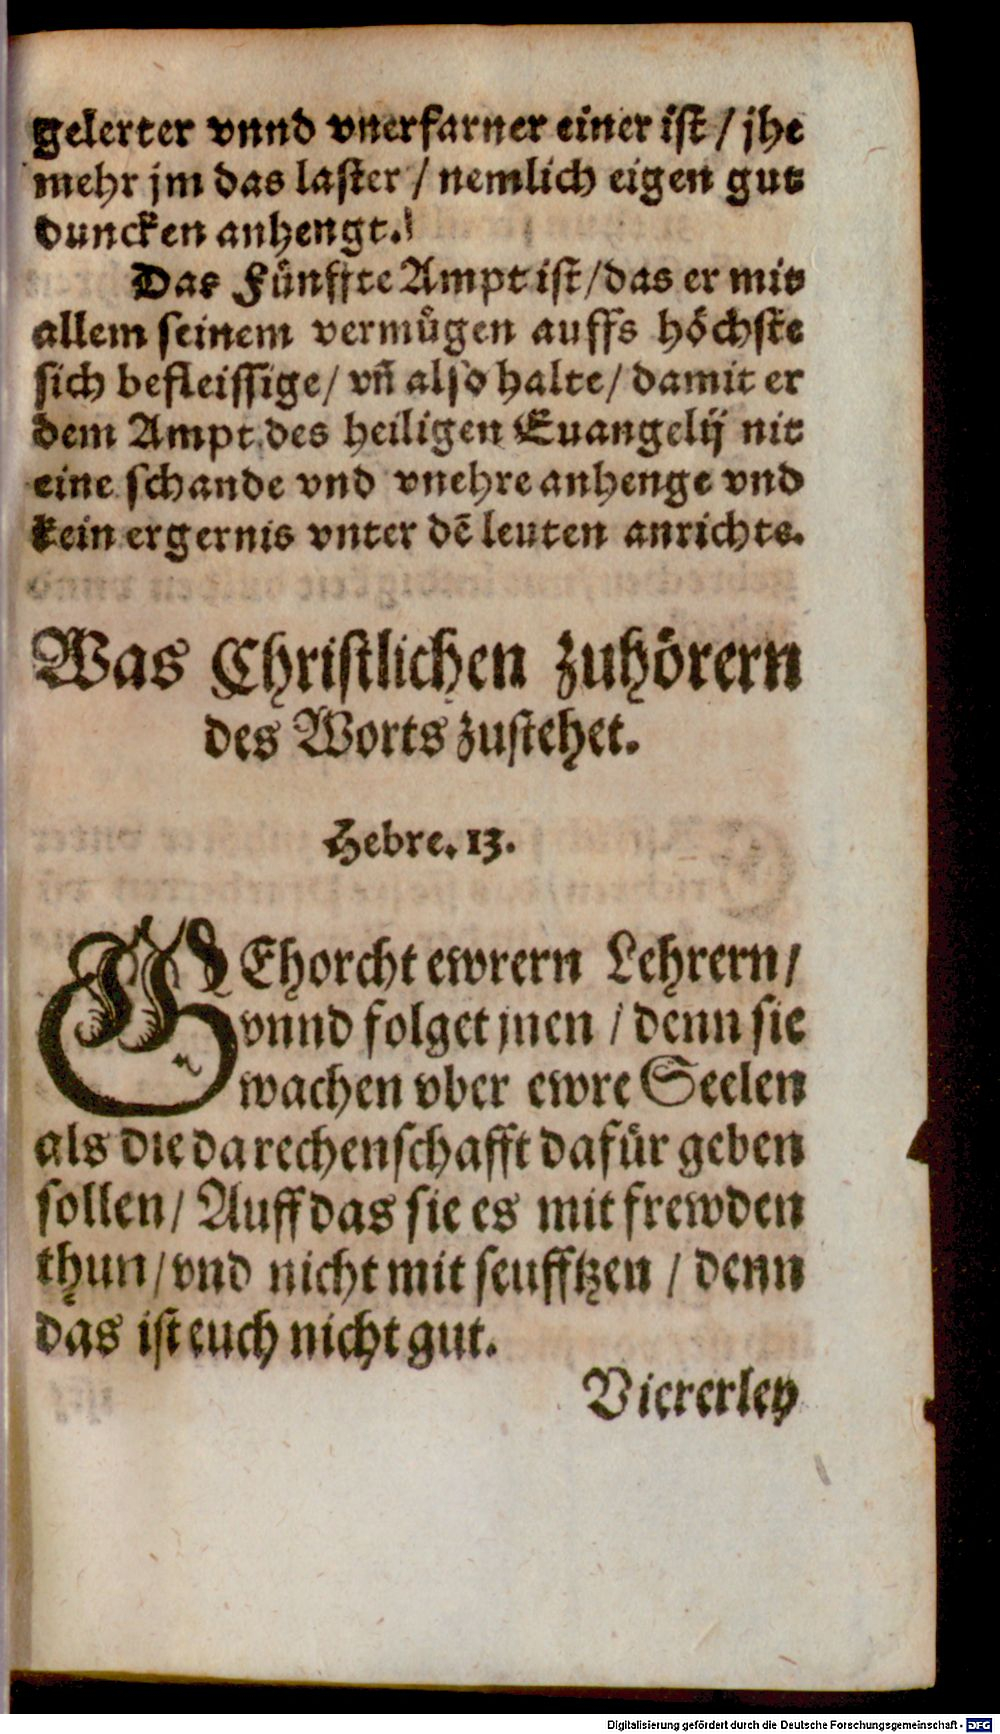 gelerter vnnd vnerfarner einer ist / jhe
mehr jm das laster / nemlich eigen gut
duncken anhengt.
Das Fünffte Ampt ist / das er mit
allem seinem vermuͤgen auffs hoͤchste
sich befleissige / vn̄ also halte / damit er
dem Ampt des heiligen Euangelij nit
eine schande vnd vnehre anhenge vnd
kein ergernis vnter dē leuten anrichte.
Was Christlichen zuhörern
des Worts zustehet.
Hebre. 13.
GEhorcht ewrern Lehrern /
vnnd folget jnen / denn sie
wachen vber ewre Seelen
als die da rechenschafft dafür geben
sollen / Auff das sie es mit frewden
thun / vnd nicht mit seufftzen / denn
das ist euch nicht gut.
Viererley
Digitalisierung gefördert durch die Deutsche Forschungsgemeinschaft - DFG